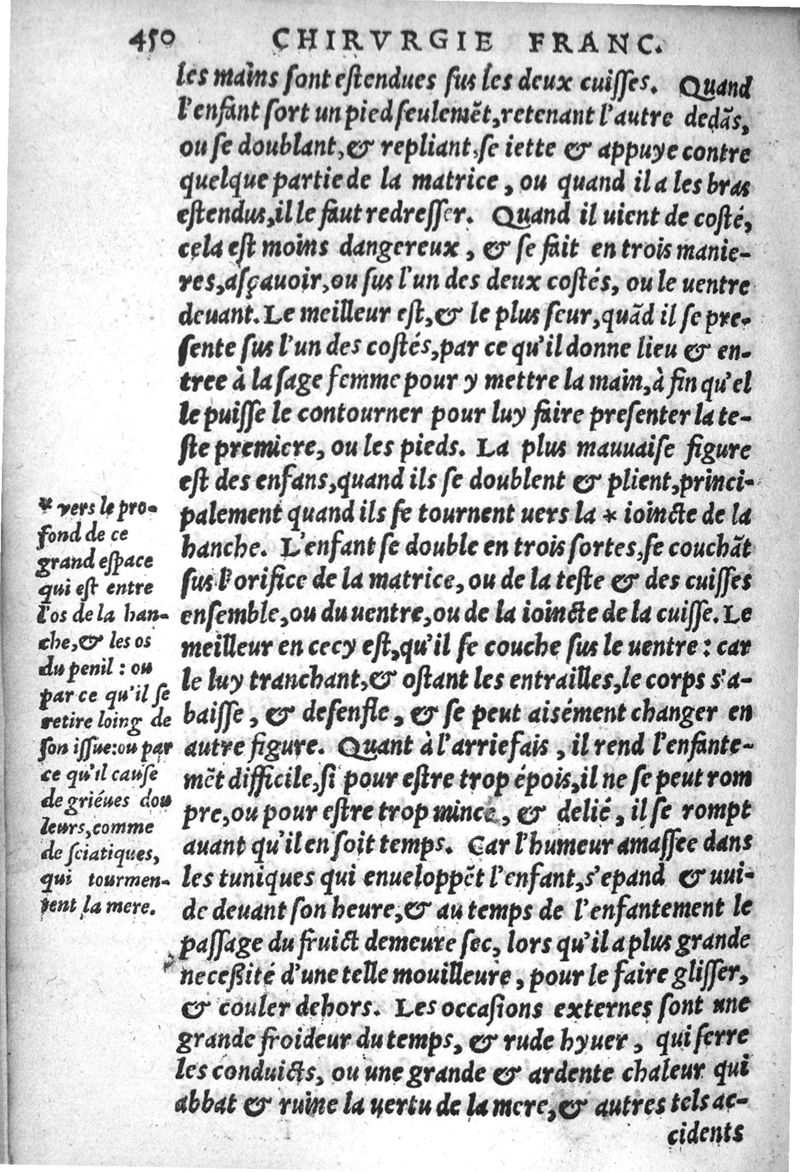 450 CHIRVRGIE FRANC.
les mains sont estendues sus les deux cuisses. Quand
l'enfant sort un pied seulemẽt, retenant l'autre dedãs,
ou se doublant, & repliant, se iette & appuye contre
quelque partie de la matrice, ou quand il a les bras
estendus, il le faut redresser. Quand il uient de costé,
cela est moins dangereux, & se fait en trois manie-
res, asçauoir, ou sus l'un des deux costés, ou le uentre
deuant. Le meilleur est, & le plus seur, quãd il se pre-
sente sus l'un des costés, par ce qu'il donne lieu & en-
tree à la sage femme pour y mettre la main, à fin qu'el
le puisse le contourner pour luy faire presenter la te-
ste premiere, ou les pieds. La plus mauuaise figure
est des enfans, quand ils se doublent & plient, princi-
palement quand ils se tournent uers la * ioincte de la
hanche. L'enfant se double en trois sortes, se couchãt
sus l'orifice de la matrice, ou de la teste & des cuisses
ensemble, ou du uentre, ou de la ioincte de la cuisse. Le
meilleur en cecy est, qu'il se couche sus le uentre : car
le luy tranchant, & ostant les entrailles, le corps s'a-
baisse, & desenfle, & se peut aisément changer en
autre figure. Quant à l'arriefais, il rend l'enfante-
mẽt difficile, si pour estre trop épois, il ne se peut rom
pre, ou pour estre trop mince, & delié, il se rompt
auant qu'il en soit temps. Car l'humeur amassee dans
les tuniques qui enueloppẽt l'enfant, s'epand & uui-
de deuant son heure, & au temps de l'enfantement le
passage du fruict demeure sec, lors qu'il a plus grande
necessité d'une telle mouilleure, pour le faire glisser,
& couler dehors. Les occasions externes sont une
grande froideur du temps, & rude hyuer, qui serre
les conduicts, ou une grande & ardente chaleur qui
abbat & ruine la uertu de la mere, & autres tels ac-
cidents
* vers le pro-
fond de ce
grand espace
qui est entre
l'os de la han-
che, & les os
du penil : ou
par ce qu'il se
retire loing de
son issue: ou par
ce qu'il cause
de griéues dou
leurs, comme
de sciatiques,
qui tourmen-
tent la mere.